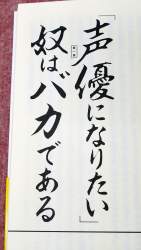 「声優になりたい」
奴はバカである